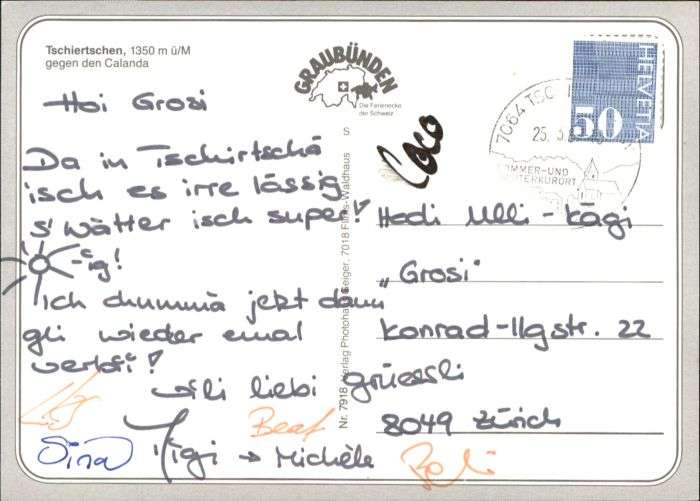 Tschiertschen, 1350 m ü/M
gegen den Calanda
GRAUBÜNDEN
Die Ferienecke
der Schweiz
HELVETIA
50
7064 TSC
25.
SOMMER-UND
WINTERKURORT
Hoi Grosi
S
Coco
Da in Tschirtschä
isch es irre lässig
s'wätter isch super!
-ig!
Ich chummä jetzt dann
gli wieder emal
verbi!
Vili liebi grüessli
Beat
Sina
Migi → Michèle
Nr. 7918 Verlag Photohaus Geiger, 7018 Flims-Waldhaus
Hedi Ulli-Kägi
„Grosi"
Konrad-Ilgstr. 22
8049 Zürich